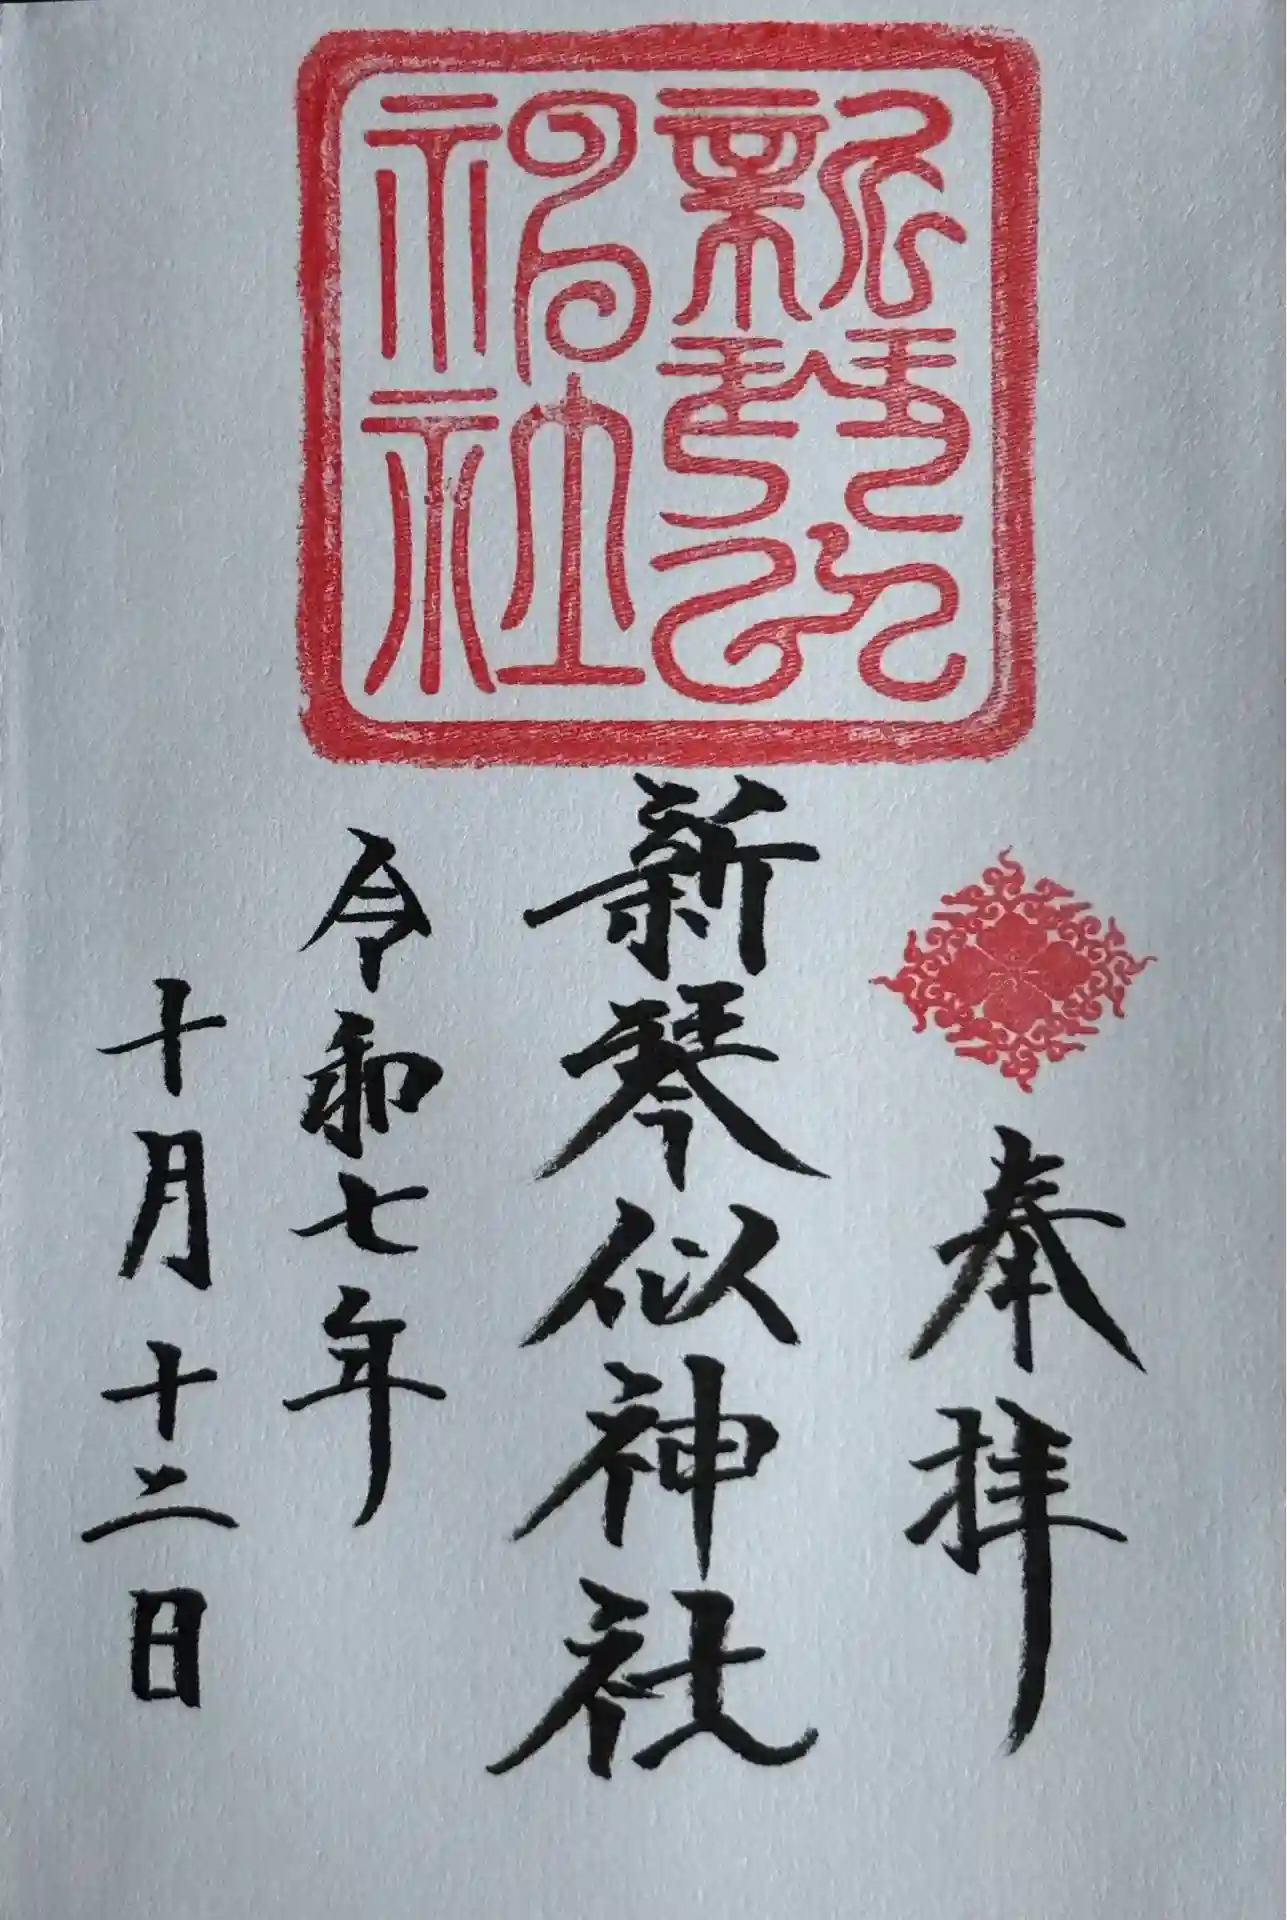 奉拝
新琴似神社
令和七年
十月十二日
新琴似神社